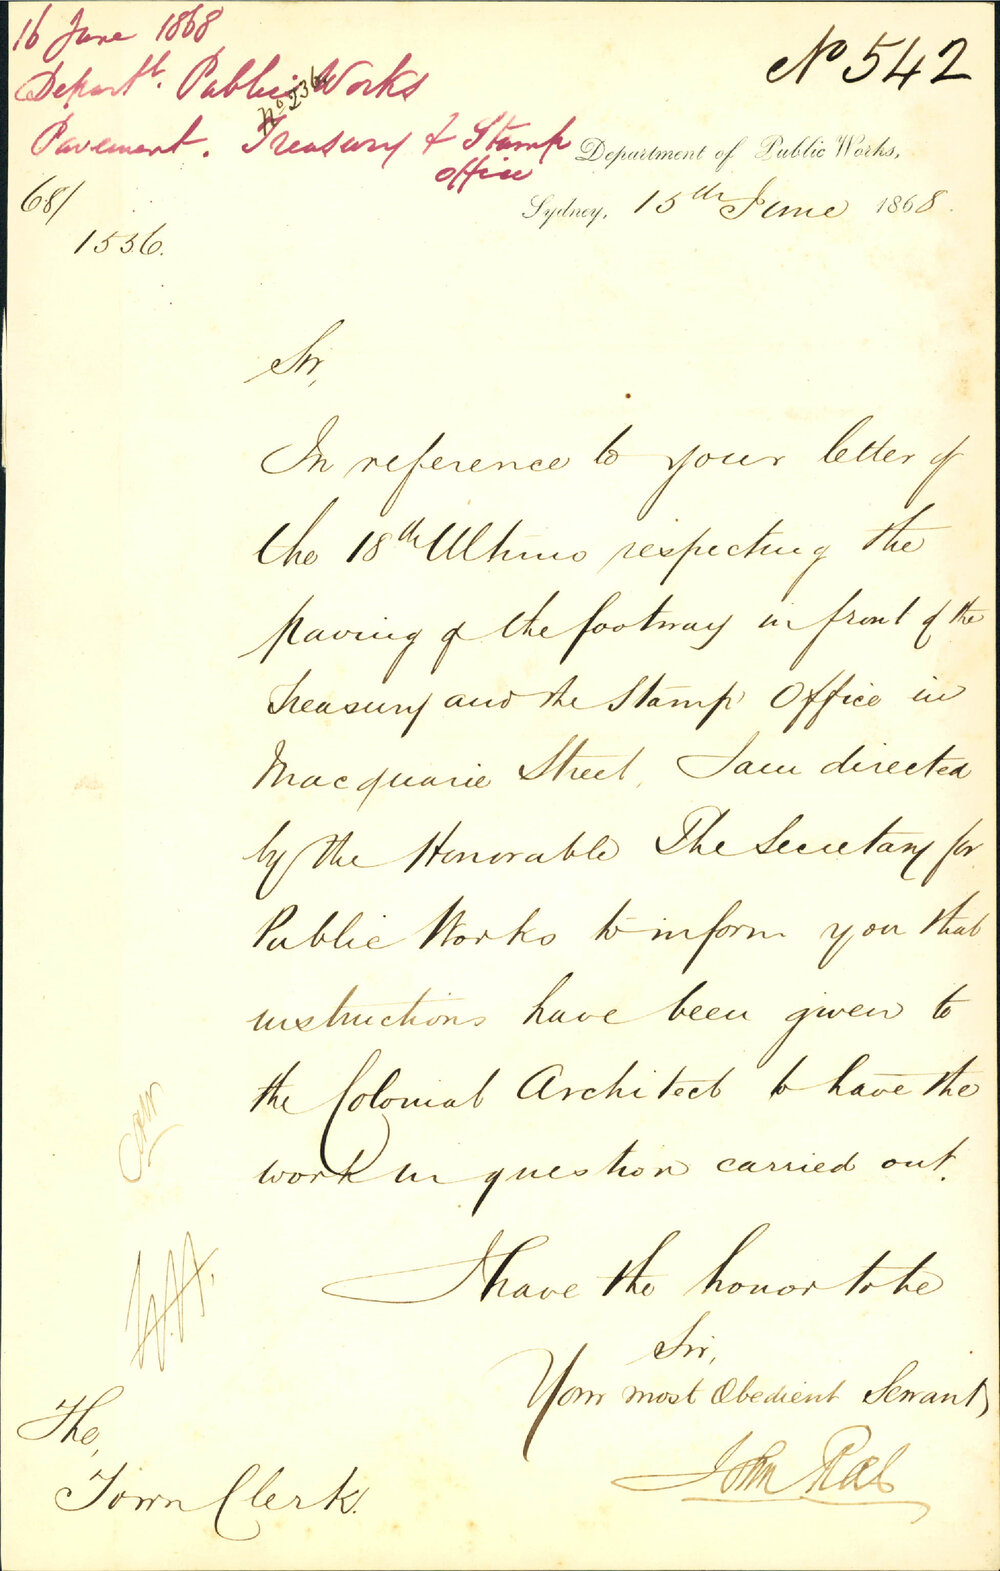 16 June 1868
Depart^t. Public Works
No 236
Pavement. Treasury & Stamp
office
68/
1536.
No 542
Department of Public Works,
Sydney, 15th June 1868.
Sir,
In reference to your letter of
the 18th Ultimo respecting the
paving of the footway in front of the
Treasury and the Stamp Office in
Macquarie Street, I am directed
by the Honorable The Secretary for
Public Works to inform you that
instructions have been given to
the Colonial Architect to have the
work in question carried out.
I have the honor to be
Sir,
Your most Obedient Servant,
John Rae
The,
Town Clerk.